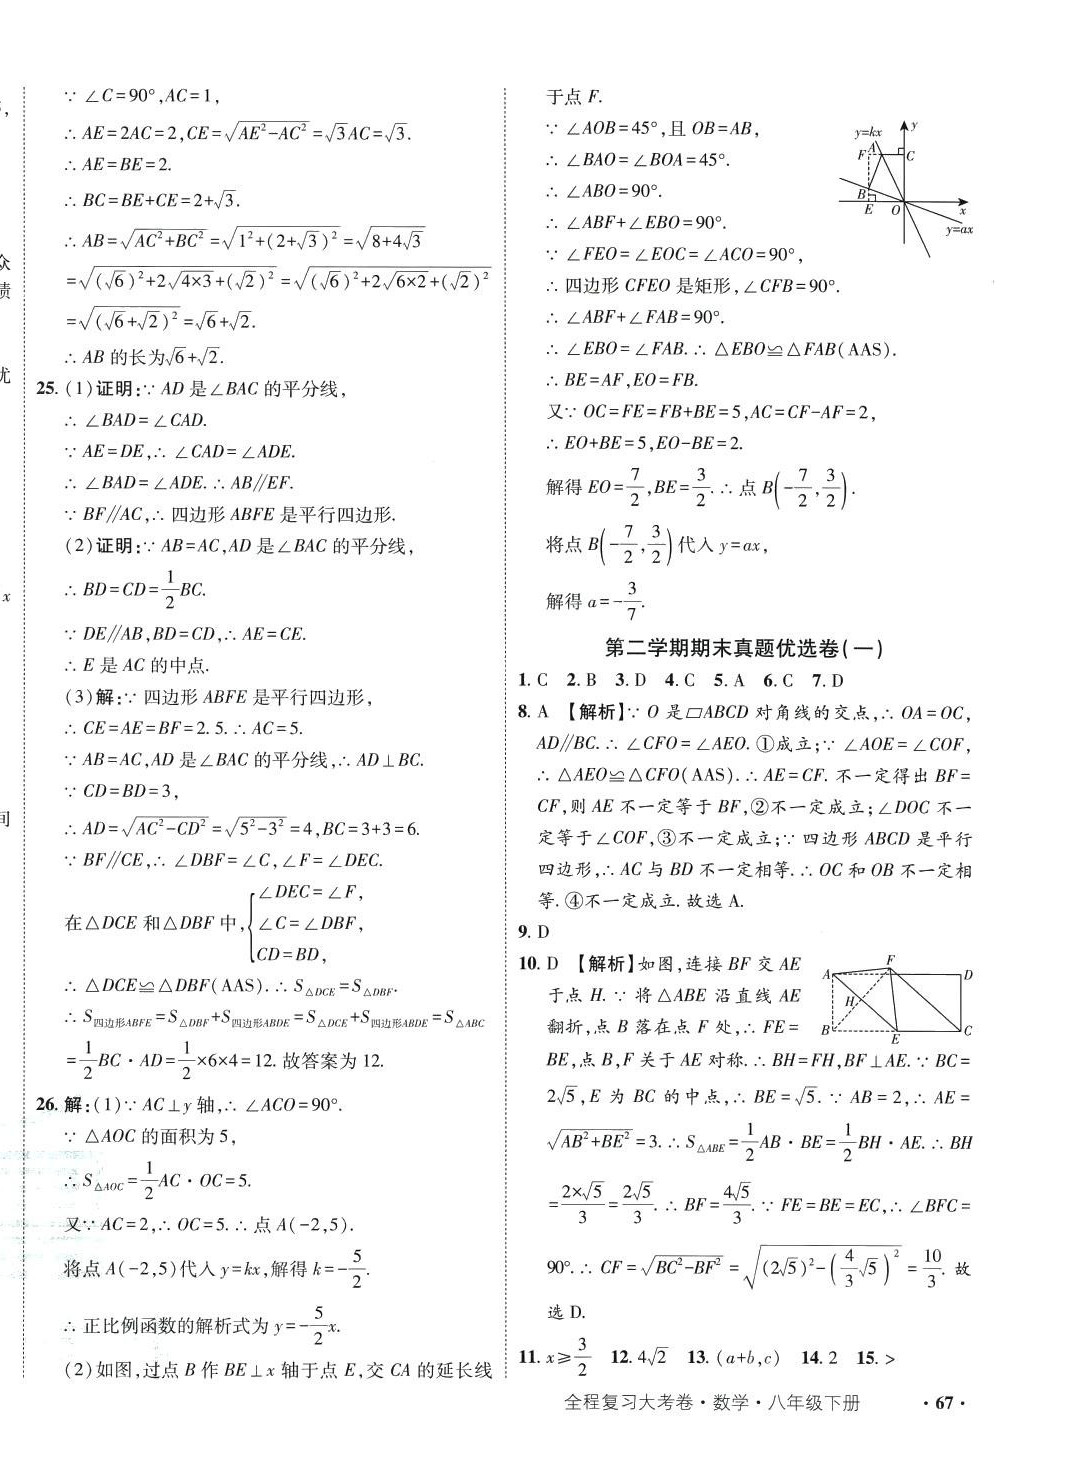 ∵ ∠C=90°,AC=1,
∴ AE=2AC=2,CE=√(AE²-AC²)=√3AC=√3.
∴ AE=BE=2.
∴ BC=BE+CE=2+√3.
∴ AB=√(AC²+BC²)=√(1²+(2+√3)²)=√(8+4√3)
=√((√6)²+2√(4×3)+(√2)²)=√((√6)²+2√(6×2)+(√2)²)
=√((√6+√2)²)=√6+√2.
∴ AB 的长为√6+√2.
25. (1)证明:∵ AD 是∠BAC 的平分线,
∴ ∠BAD=∠CAD.
∵ AE=DE,∴ ∠CAD=∠ADE.
∴ ∠BAD=∠ADE.∴ AB∥EF.
∵ BF∥AC,∴ 四边形 ABFE 是平行四边形.
(2)证明:∵ AB=AC,AD 是∠BAC 的平分线,
∴ BD=CD=1/2BC.
∵ DE∥AB,BD=CD,∴ AE=CE.
∴ E 是 AC 的中点.
(3)解:∵ 四边形 ABFE 是平行四边形,
∴ CE=AE=BF=2.5.∴ AC=5.
∵ AB=AC,AD 是∠BAC 的平分线,∴ AD⊥BC.
∵ CD=BD=3,
∴ AD=√(AC²-CD²)=√(5²-3²)=4,BC=3+3=6.
∵ BF∥CE,∴ ∠DBF=∠C,∠F=∠DEC.
∠DEC=∠F,
在△DCE 和△DBF 中,{∠C=∠DBF,
CD=BD,
∴ △DCE≌△DBF(AAS).∴ S△DCE=S△DBF.
∴ S四边形ABFE=S△DBF+S四边形ABDE=S△DCE+S四边形ABDE=S△ABC
=1/2BC·AD=1/2×6×4=12. 故答案为 12.
26. 解:(1)∵ AC⊥y 轴,∴ ∠ACO=90°.
∵ △AOC 的面积为 5,
∴ S△AOC=1/2AC·OC=5.
又∵ AC=2,∴ OC=5.∴ 点 A(-2,5).
将点 A(-2,5)代入 y=kx,解得 k=-5/2.
∴ 正比例函数的解析式为 y=-5/2x.
(2)如图,过点 B 作 BE⊥x 轴于点 E,交 CA 的延长线
于点 F.
∵ ∠AOB=45°,且 OB=AB,
∴ ∠BAO=∠BOA=45°.
∴ ∠ABO=90°.
∴ ∠ABF+∠EBO=90°.
∵ ∠FEO=∠EOC=∠ACO=90°,
∴ 四边形 CFEO 是矩形,∠CFB=90°.
∴ ∠ABF+∠FAB=90°.
∴ ∠EBO=∠FAB.∴ △EBO≌△FAB(AAS).
∴ BE=AF,EO=FB.
又∵ OC=FE=FB+BE=5,AC=CF-AF=2,
∴ EO+BE=5,EO-BE=2.
解得 EO=7/2,BE=3/2.∴ 点 B(-7/2,3/2).
将点 B(-7/2,3/2)代入 y=ax,
解得 a=-3/7.
y=kx
y
F
A
C
B
E
O
x
y=ax
第二学期期末真题优选卷(一)
1. C 2. B 3. D 4. C 5. A 6. C 7. D
8. A 【解析】∵ O 是▱ABCD 对角线的交点,∴ OA=OC,
AD∥BC.∴ ∠CFO=∠AEO. ①成立;∵ ∠AOE=∠COF,
∴ △AEO≌△CFO(AAS).∴ AE=CF. 不一定得出 BF=
CF,则 AE 不一定等于 BF,②不一定成立;∠DOC 不一
定等于∠COF,③不一定成立;∵ 四边形 ABCD 是平行
四边形,∴ AC 与 BD 不一定相等.∴ OC 和 OB 不一定相
等. ④不一定成立. 故选 A.
9. D
10. D 【解析】如图,连接 BF 交 AE
于点 H.∵ 将△ABE 沿直线 AE
翻折,点 B 落在点 F 处,∴ FE=
BE,点 B,F 关于 AE 对称.∴ BH=FH,BF⊥AE.∵ BC=
2√5,E 为 BC 的中点,∴ BE=√5.∵ AB=2,∴ AE=
√(AB²+BE²)=3.∴ S△ABE=1/2AB·BE=1/2BH·AE.∴ BH
=2×√5/3=2√5/3.∴ BF=4√5/3.∵ FE=BE=EC,∴ ∠BFC=
90°.∴ CF=√(BC²-BF²)=√((2√5)²-(4/3√5)²)=10/3. 故
选 D.
F
A
D
H
B
E
C
11. x≥3/2 12. 4√2 13. (a+b,c) 14. 2 15. >
全程复习大考卷·数学·八年级下册 ·67·
众
绩
优
x
间